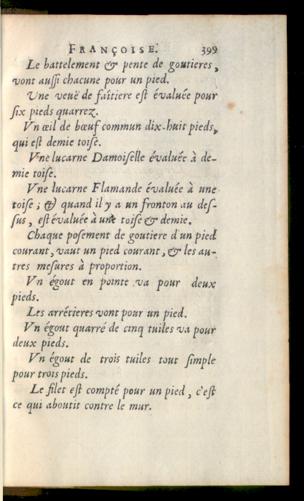 FRANÇOISE. 399
Le battelement & pente de goutieres,
vont aussi chacune pour un pied.
Une veuë de faîtiere est évaluée pour
six pieds quarrez.
Vn œil de bœuf commun dix-huit pieds,
qui est demie toise.
Vne lucarne Damoiselle évaluée à de-
mie toise.
Vne lucarne Flamande évaluée à une
toise ; & quand il y a un fronton au des-
sus, est évaluée à une toise & demie.
Chaque posement de goutiere d'un pied
courant, vaut un pied courant, & les au-
tres mesures à proportion.
Vn égout en pointe va pour deux
pieds.
Les arrétieres vont pour un pied.
Vn égout quarré de cinq tuiles va pour
deux pieds.
Vn égout de trois tuiles tout simple
pour trois pieds.
Le filet est compté pour un pied, c'est
ce qui aboutit contre le mur.